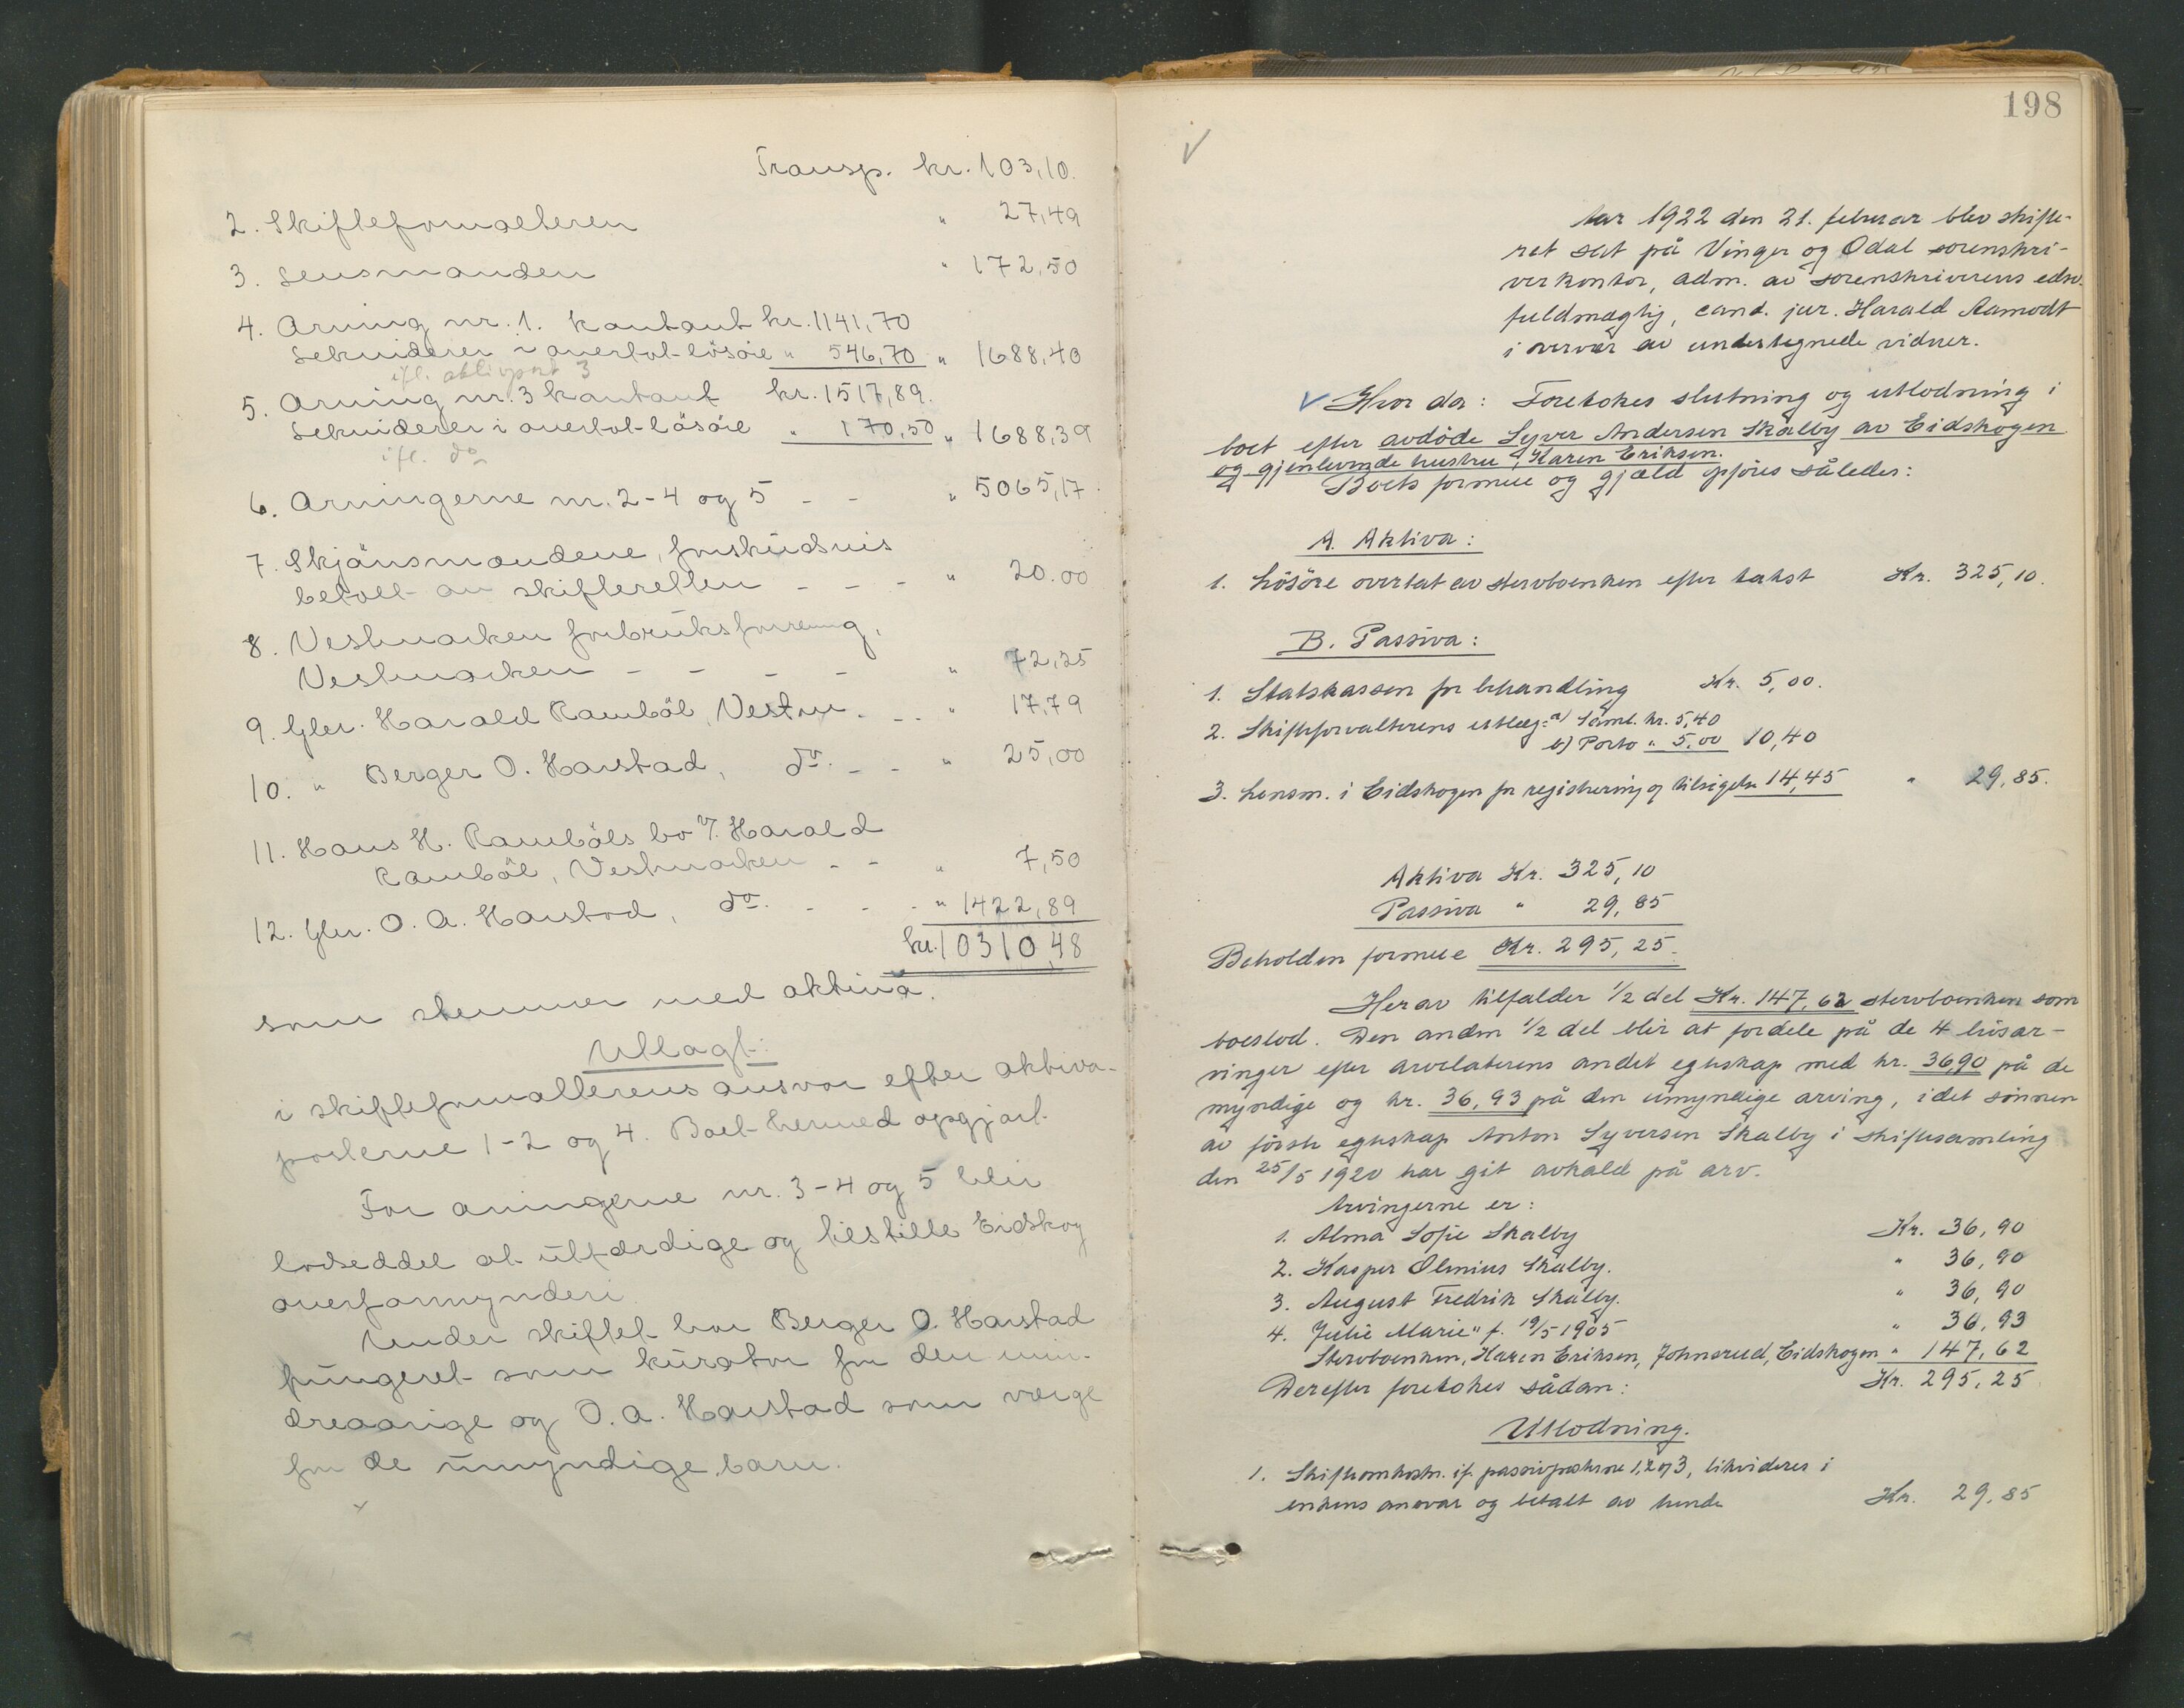 Transp. kr. 103,10.
2. Skifteforvalteren " 27,49
3. Lensmanden " 172,50
4. Arving nr. 1. kontant kr. 1141,70
Likviderer i overtat løsøie " 546,70 " 1688,40
ifl. aktivpost 3
5. Arving nr. 3 kontant kr. 1517,89.
Likviderer i overtat løsøie " 170,50 " 1688,39
ifl. do
6. Arvingerne nr. 2-4 og 5 - - " 5065,17.
7. Skjønsmændene, forskudsvis
betalt av skifteretten - - - " 20.00
8. Vestmarken forbruksforening,
Vestmarken - - - - " 72,25
9. Gbr. Harald Ramböl, Vestm. - - " 17,79
10. " Berger O. Harstad, do. - - " 25,00
11. Hans H. Ramböls bo v. Harald
Ramböl, Vestmarken - - " 7,50
12. Gbr. O. A. Harstad, do. - - - " 1422,89
kr. 10310,48
som stemmer med aktiva.
Utlagt:
i skifteforvalterens ansvar efter aktiva-
posterne 1-2 og 4. Boet hermed opgjort.
For arvingerne nr. 3-4 og 5 blir
lodseddel at utfærdige og tilstille Eidskog
overformynderi
Under skiftet har Berger O. Harstad
fungeret som kurator for den min-
dreaarige og O. A. Harstad som værge
for de umyndige barn.
198
Aar 1922 den 21. februar blev skifte-
ret sat på Vinger og Odal sorenskri-
verkontor, adm. av sorenskriverens edsv.
fuldmægtig, cand. jur. Harald Aamodt
i overvær av undertegnede vidner.
Hvor da: Foretokes slutning og utlodning i
boet efter avdöde Syver Andersen Skålby av Eidskogen
og gjenlevende hustru, Karen Eriksen.
Boets formue og gjæld opföres således:
A. Aktiva:
1. Lösöre overtat av stervboenken efter takst Kr. 325,10.
B. Passiva:
1. Statskassen for behandling Kr. 5,00.
2. Skifteforvalterens utlæg: a) Saml. kr. 5,40
b) Porto " 5,00 10,40
3. Lensm. i Eidskogen for registrering og tilsigelse 14,45 " 29,85.
Aktiva Kr. 325,10
Passiva " 29,85
Beholden formue Kr. 295,25.
Herav tilfalder 1/2 del Kr. 147,62 stervboenken som
boeslod. Den anden 1/2 del blir at fordele på de 4 livsar-
vinger efter arvelaterens andet egteskap med kr. 36,90 på de
myndige og kr. 36,93 på den umyndige arving, idet sönnen
av förste egteskap Anton Syversen Skalby i skiftesamling
den 25/5 1920 har git avkald på arv.
Arvingerne er:
1. Alma Sofie Skalby Kr. 36,90
2. Kasper Olenius Skalby. " 36,90
3. August Fredrik Skalby. " 36,90
4. Julie Marie " f. 19/5 1905 " 36,93
Stervboenken, Karen Eriksen, Johnsrud, Eidskogen " 147,62
Derefter foretokes sådan: Kr. 295,25
Utlodning.
1. Skifteomkostn. if. passivposterne 1, 2 og 3, likvideres i
enkens ansvar og betalt av hende Kr. 29,85